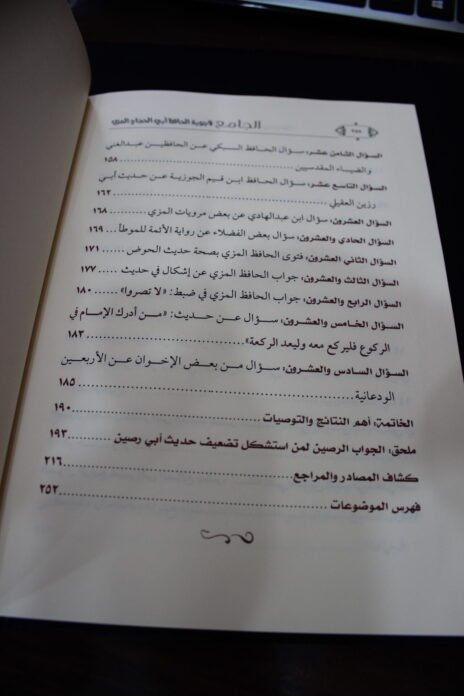 الجامع لأجوبة الحافظ أبي الحجاج المزي
السؤال الثامن عشر: سؤال الحافظ السبكي عن الحافظين عبدالغني
والضياء المقدسيين ١٥٨
السؤال التاسع عشر: سؤال الحافظ ابن قيم الجوزية عن حديث أبي
رزين العقيلي ١٦٢
السؤال العشرون: سؤال ابن عبدالهادي عن بعض مرويات المزي ١٦٨
السؤال الحادي والعشرون: سؤال بعض الفضلاء عن رواية الأئمة للموطأ ١٦٩
السؤال الثاني العشرون: فتوى الحافظ المزي بصحة حديث الحوض ١٧١
السؤال الثالث والعشرون: جواب الحافظ المزي عن إشكال في حديث ١٧٧
السؤال الرابع والعشرون: جواب الحافظ المزي في ضبط: «لا تصروا» ١٨٠
السؤال الخامس والعشرون: سؤال عن حديث: «من أدرك الإمام في
الركوع فليركع معه وليعد الركعة» ١٨٣
السؤال السادس والعشرون: سؤال من بعض الإخوان عن الأربعين
الودعانية ١٨٥
الخاتمة: أهم النتائج والتوصيات ١٩٠
ملحق: الجواب الرصين لمن استشكل تضعيف حديث أبي رصين ١٩٣
كشاف المصادر والمراجع ٢١٦
فهرس الموضوعات ٢٥٢